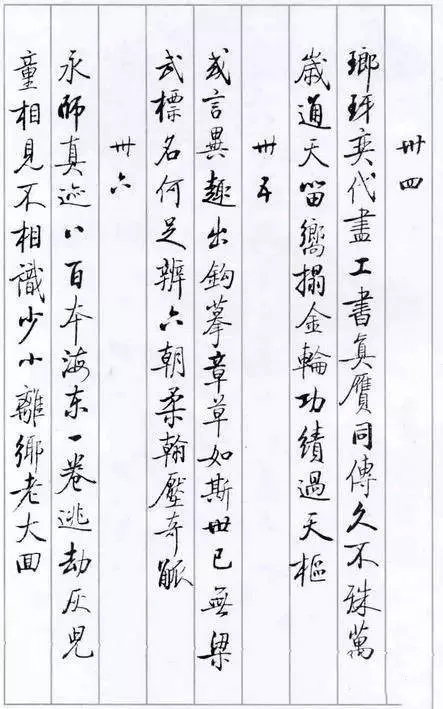 卅四
瑯玡奕代盡工書真贗同傳久不殊萬
歲通天留嚮搨金輪功績過天樞
卅五
或言異趣出鈎摹章草如斯世已無梁
武標名何足辨六朝柔翰壓奇觚
卅六
永師真迹八百本海东一卷逃劫灰兒
童相見不相識少小離鄉老大回